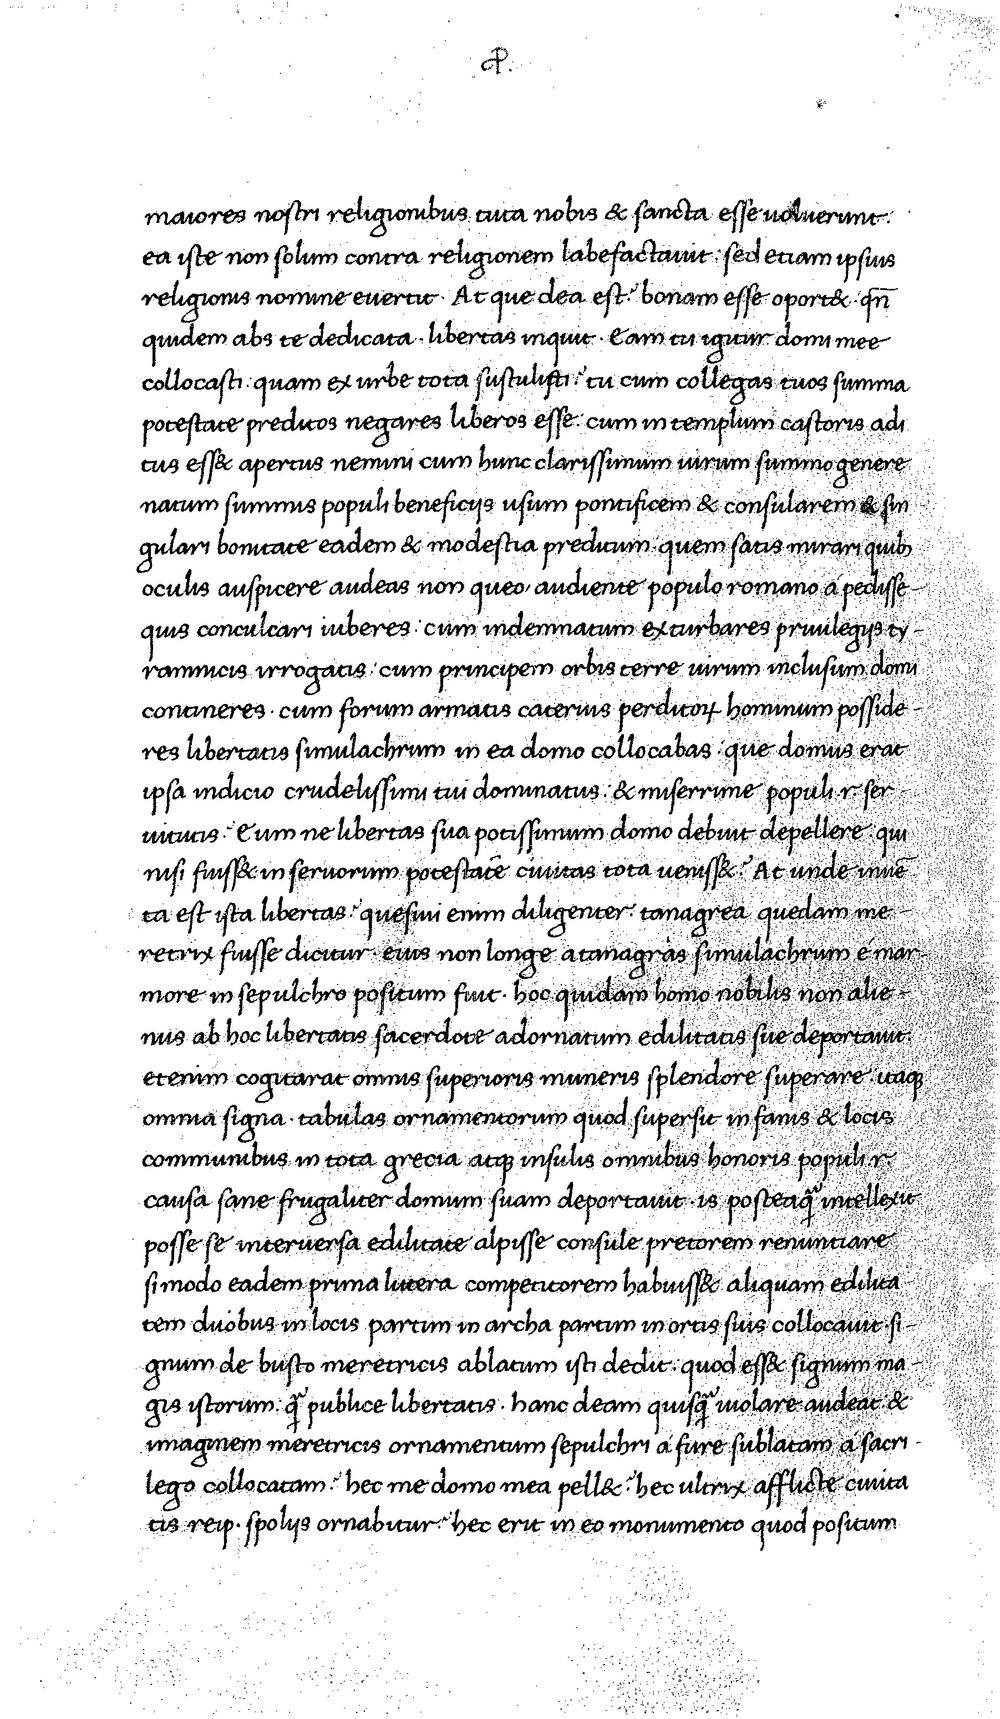 P.
maiores nostri religionibus tuta nobis & sancta esse uoluerunt.
ea iste non solum contra religionem labefactauit: sed etiam ipsius
religionis nomine euertit. At que dea est? bonam esse oport&. qñ
quidem abs te dedicata. libertas inquit. Eam tu igitur domi mee
collocasti: quam ex urbe tota sustulisti? tu cum collegas tuos summa
potestate preditos negares liberos esse: cum in templum castoris adi
tus ess& apertus nemini cum hunc clarissimum uirum summo genere
natum summis populi beneficijs usum pontificem & consularem & sin
gulari bonitate eadem & modestia preditum: quem satis mirari quib;
oculis auspicere audeas non queo, audiente populo romano a pedisse-
quis conculcari iuberes: cum indemnatum exturbares priuilegijs ty-
rannicis irrogatis: cum principem orbis terre uirum inclusum domi
contineres. cum forum armatis cateruis perditoꝝ hominum posside-
res libertatis simulachrum in ea domo collocabas: que domus erat
ipsa indicio crudelissimi tui dominatus: & miserrime populi r. ser-
uitutis. Eum ne libertas sua potissimum domo debuit depellere: qui
nisi fuiss& in seruorum potestatē ciuitas tota ueniss&? At unde inuē
ta est ista libertas? quesiui enim diligenter. tanagrea quedam me-
retrix fuisse dicitur. eius non longe a tanagras simulachrum e mar-
more in sepulchro positum fuit. hoc quidam homo nobilis non alie-
nus ab hoc libertatis sacerdote adornatum edilitatis sue deportauit.
etenim cogitarat omnis superioris muneris splendore superare. itaqꝫ
omnia signa. tabulas ornamentorum quod supersit in fanis & locis
communibus in tota grecia atqꝫ insulis omnibus honoris populi r.
causa sane frugaliter domum suam deportauit. is posteaq̃ intellexit
posse se interuersa edilitate alpisse consule pretorem renuntiare
si modo eadem prima littera competitorem habuiss& aliquam edilita
tem duobus in locis partim in archa partim in ortis suis collocauit. si-
gnum de busto meretricis ablatum isti dedit. quod ess& signum ma-
gis istorum: q̃ publice libertatis. hanc deam quisq̃ uiolare audeat &
imaginem meretricis ornamentum sepulchri a fure sublatam a sacri-
lego collocatam? hec me domo mea pell&? hec ultrix afflicte ciuita
tis reip. spolijs ornabitur? hec erit in eo monumento quod positum